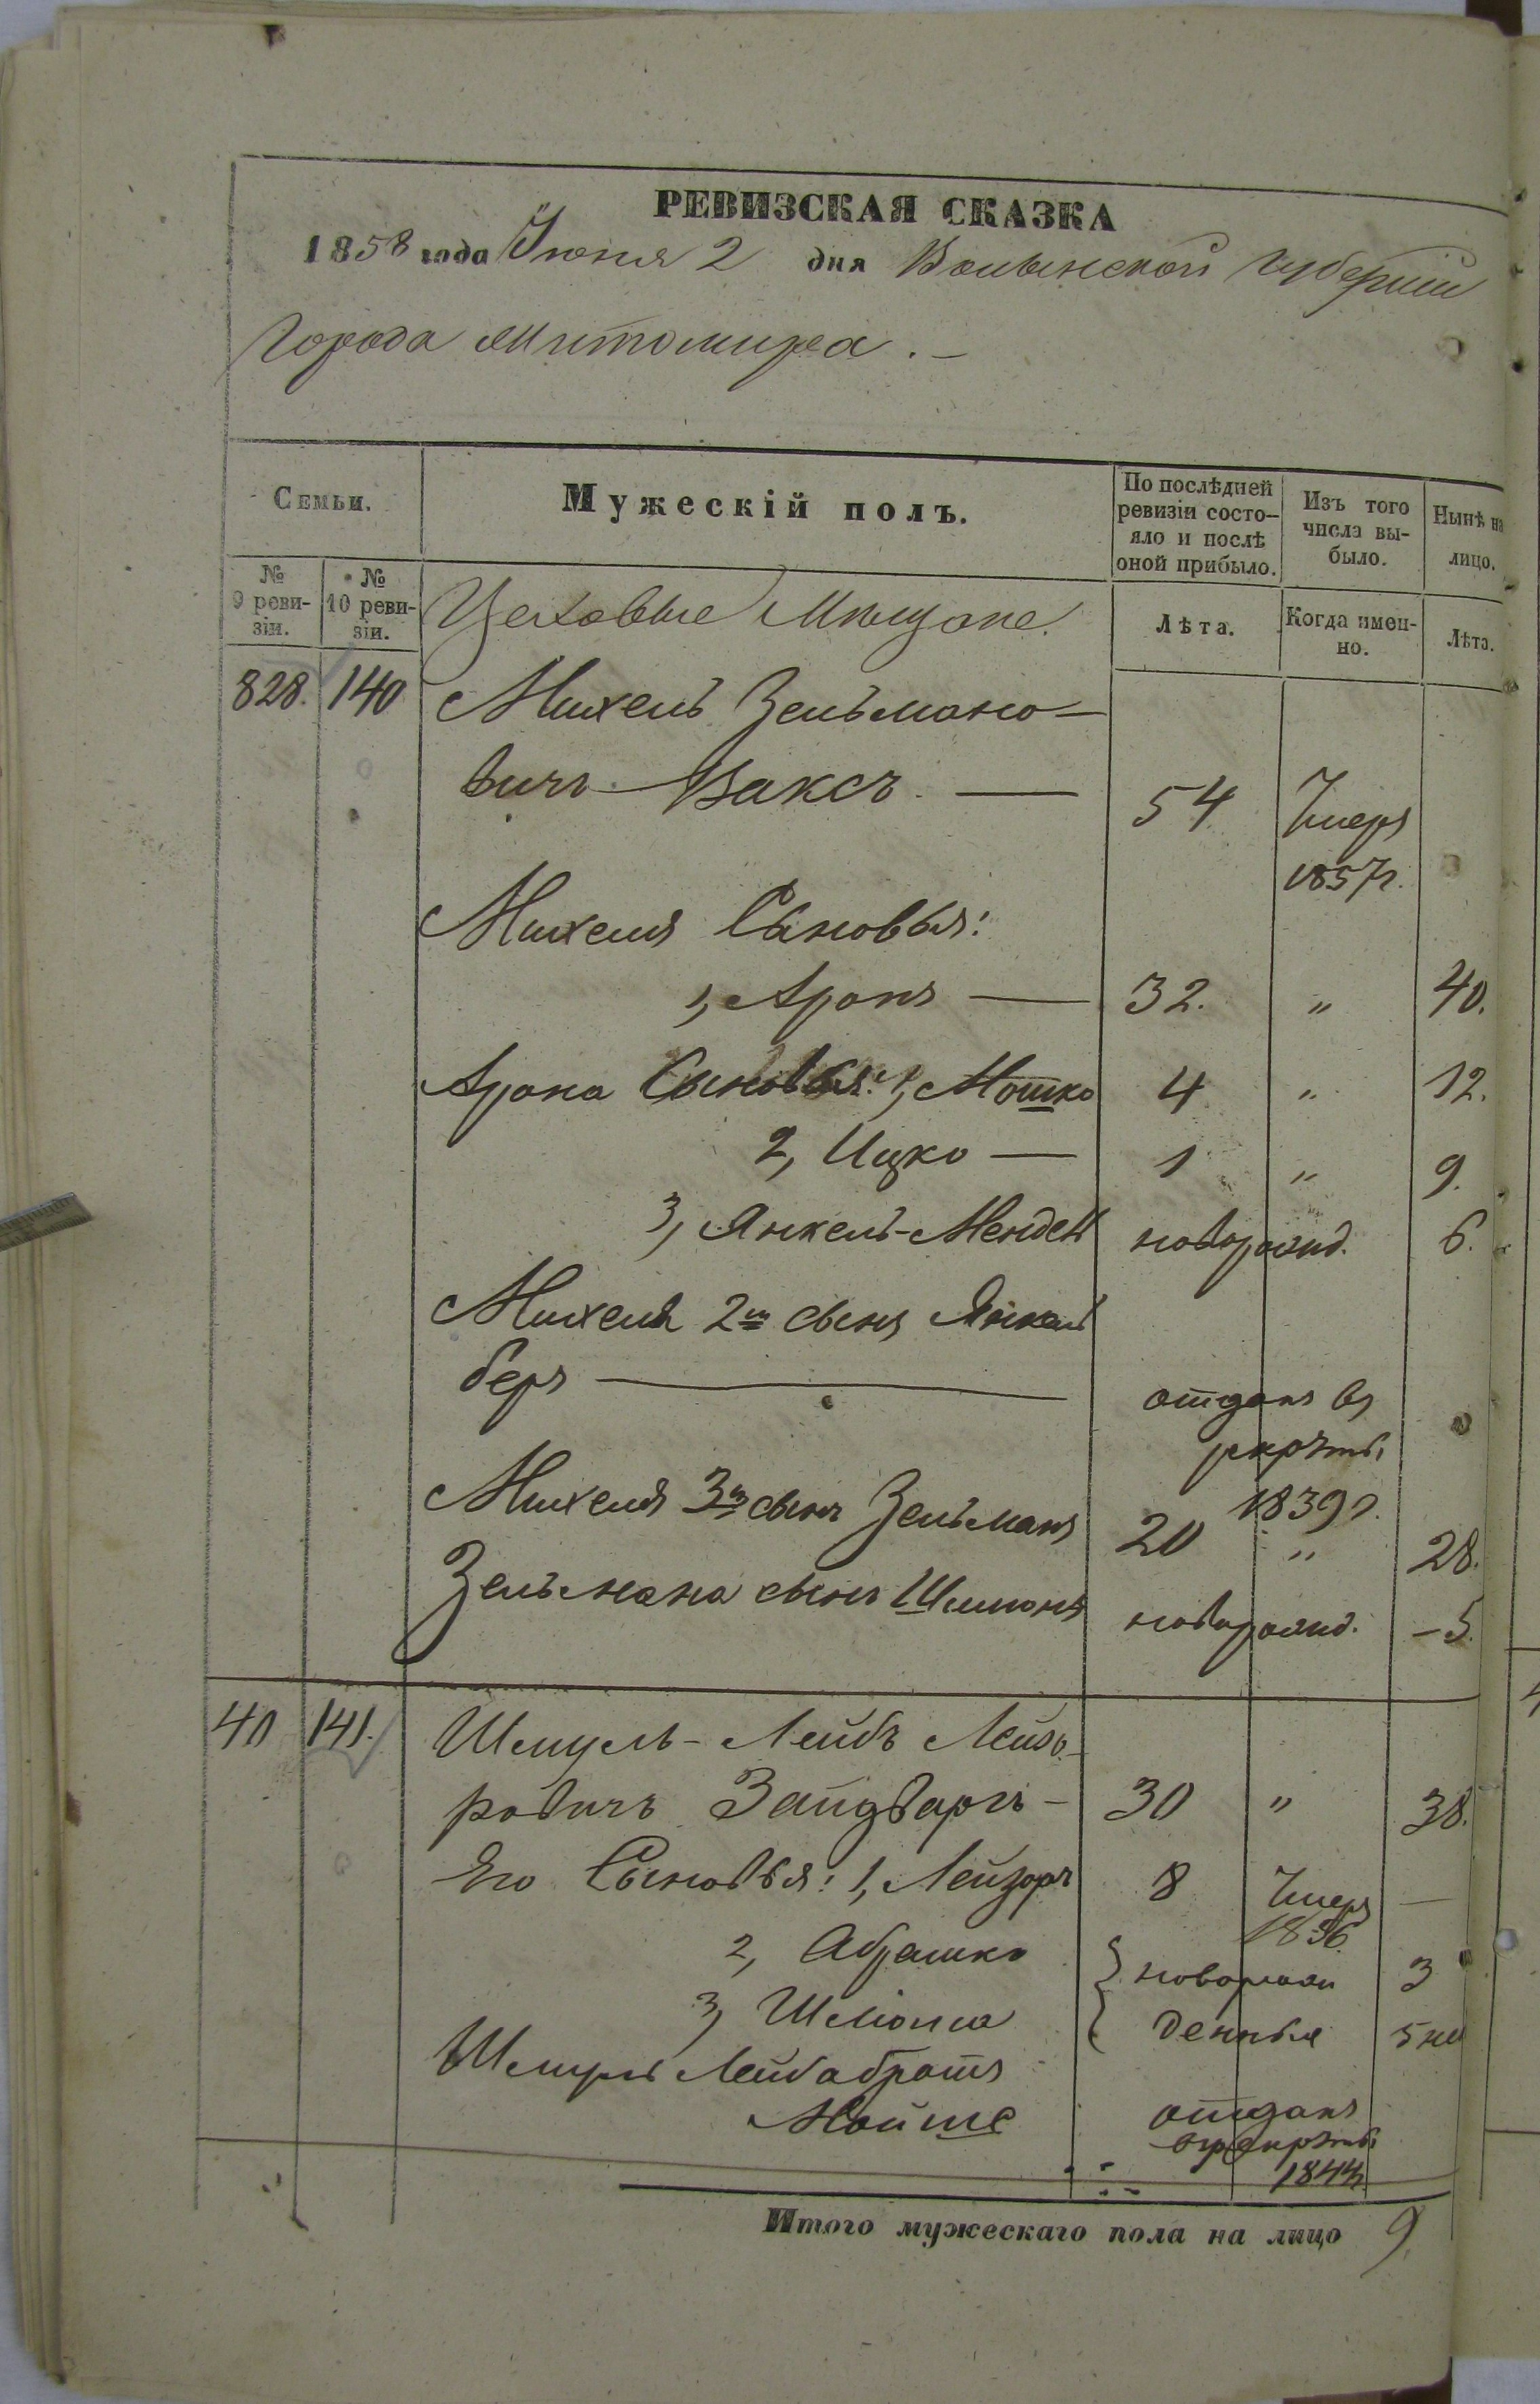 РЕВИЗСКАЯ СКАЗКА
1858 года Июня 2 дня Волынской губернии
города Житомира. –
Семьи.
Мужескій полъ.
По послѣдней ревизіи состо-
яло и послѣ оной прибыло.
Изъ того числа вы-
было.
Нынѣ на лицо.
№ 9 реви-
зіи.
№ 10 реви-
зіи.
Цеховые Мѣщане.
Лѣта.
Когда имен-
но.
Лѣта.
828. 140 Михель Зельмано-
вичъ Ваксъ. — 54 Умеръ
1857г.
Михеля Сыновья:
1, Аронъ — 32. " 40.
Арона Сыновья: 1, Мошко 4 " 12.
2, Ицко — 1 " 9.
3, Янкель-Мендель новорожд. 6.
Михеля 2й сынъ Янкель
беръ — отданъ въ
рекруты
1839г.
Михеля 3й сынъ Зельманъ 20 " 28.
Зельмана сынъ Шлиома новорожд. – 5.
141. Шмуль-Лейбъ Лейзо-
ровичъ Зайдваргъ – 30 " 38.
Его Сыновья: 1, Лейзоръ 8 Умеръ —
1856.
2, Абрамко новорож 3
3, Шліома денные 5 не
Шмуль Лейба братъ
Мойше отданъ
въ рекруты
1844г.
Итого мужескаго пола на лицо 9.